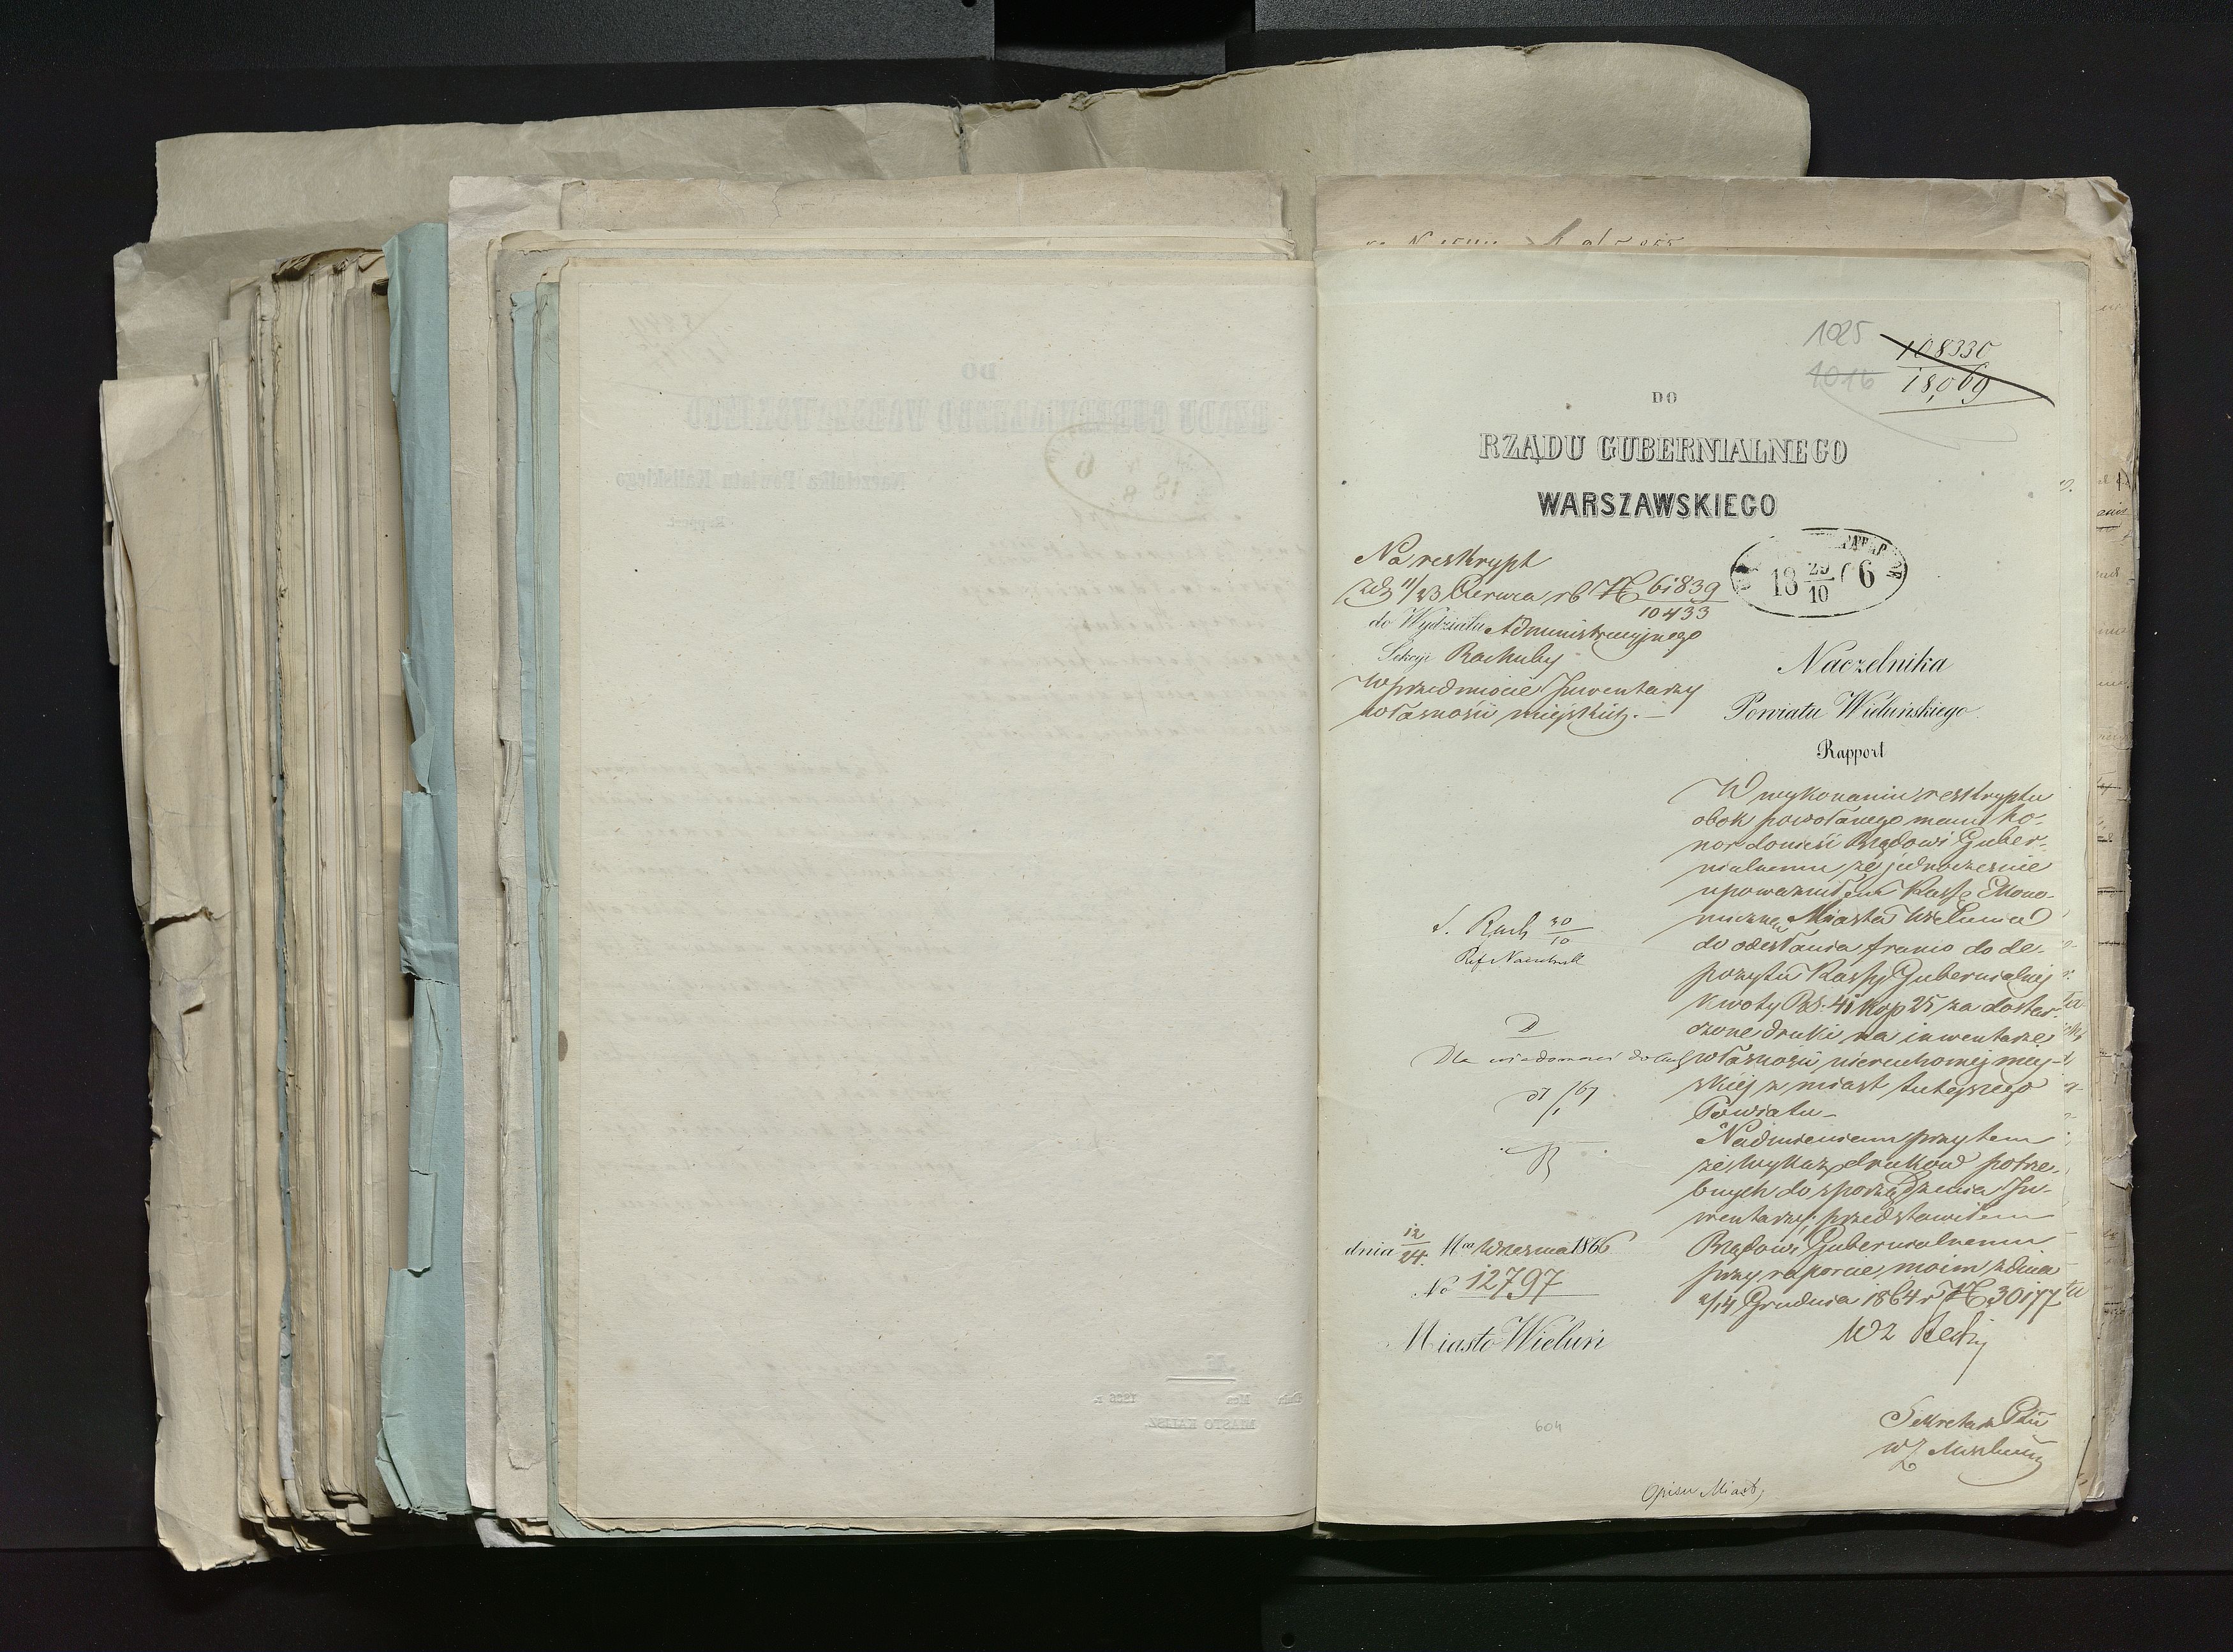 1025
1016
108330
18,069
DO
RZĄDU GUBERNIALNEGO
WARSZAWSKIEGO
18 29/10 66
Na reskrypt
z d. 11/23 Czerwca rb N 61839/10433
do Wydziału Administracyjnego
Sekcyi Rachuby
W przedmiocie Inwentarzy
własności miejskich.—
Naczelnika
Powiatu Wieluńskiego
Rapport
W wykonaniu reskryptu
obok powołanego mam ho-
nor donieść Rządowi Guber-
nialnemu że jednocześnie
upoważniłem Kassę Ekono-
miczną Miasta Wielunia
do odesłania franco do de-
pozytu Kassy Gubernialnej
kwoty Rs. 41 kop 25 za dostar-
czone druki na inwentarze
własności nieruchomej miej-
skiej z miast tutejszego
Powiatu—
Nadmieniam przytem
że wykaz druków potrze-
bnych do sporządzenia In-
wentarzy, przedstawiłem
Rządowi Gubernialnemu
przy raporcie moim z dnia
2/14 Grudnia 1864 r N 30177
S. Rach 30/10
D
Dla wiadomości
dnia 12/24 Mca Września 1866
No 12797
Miasto Wieluń
WZ
Sekretarz Ptu
WZ
604
Opisu Miast,